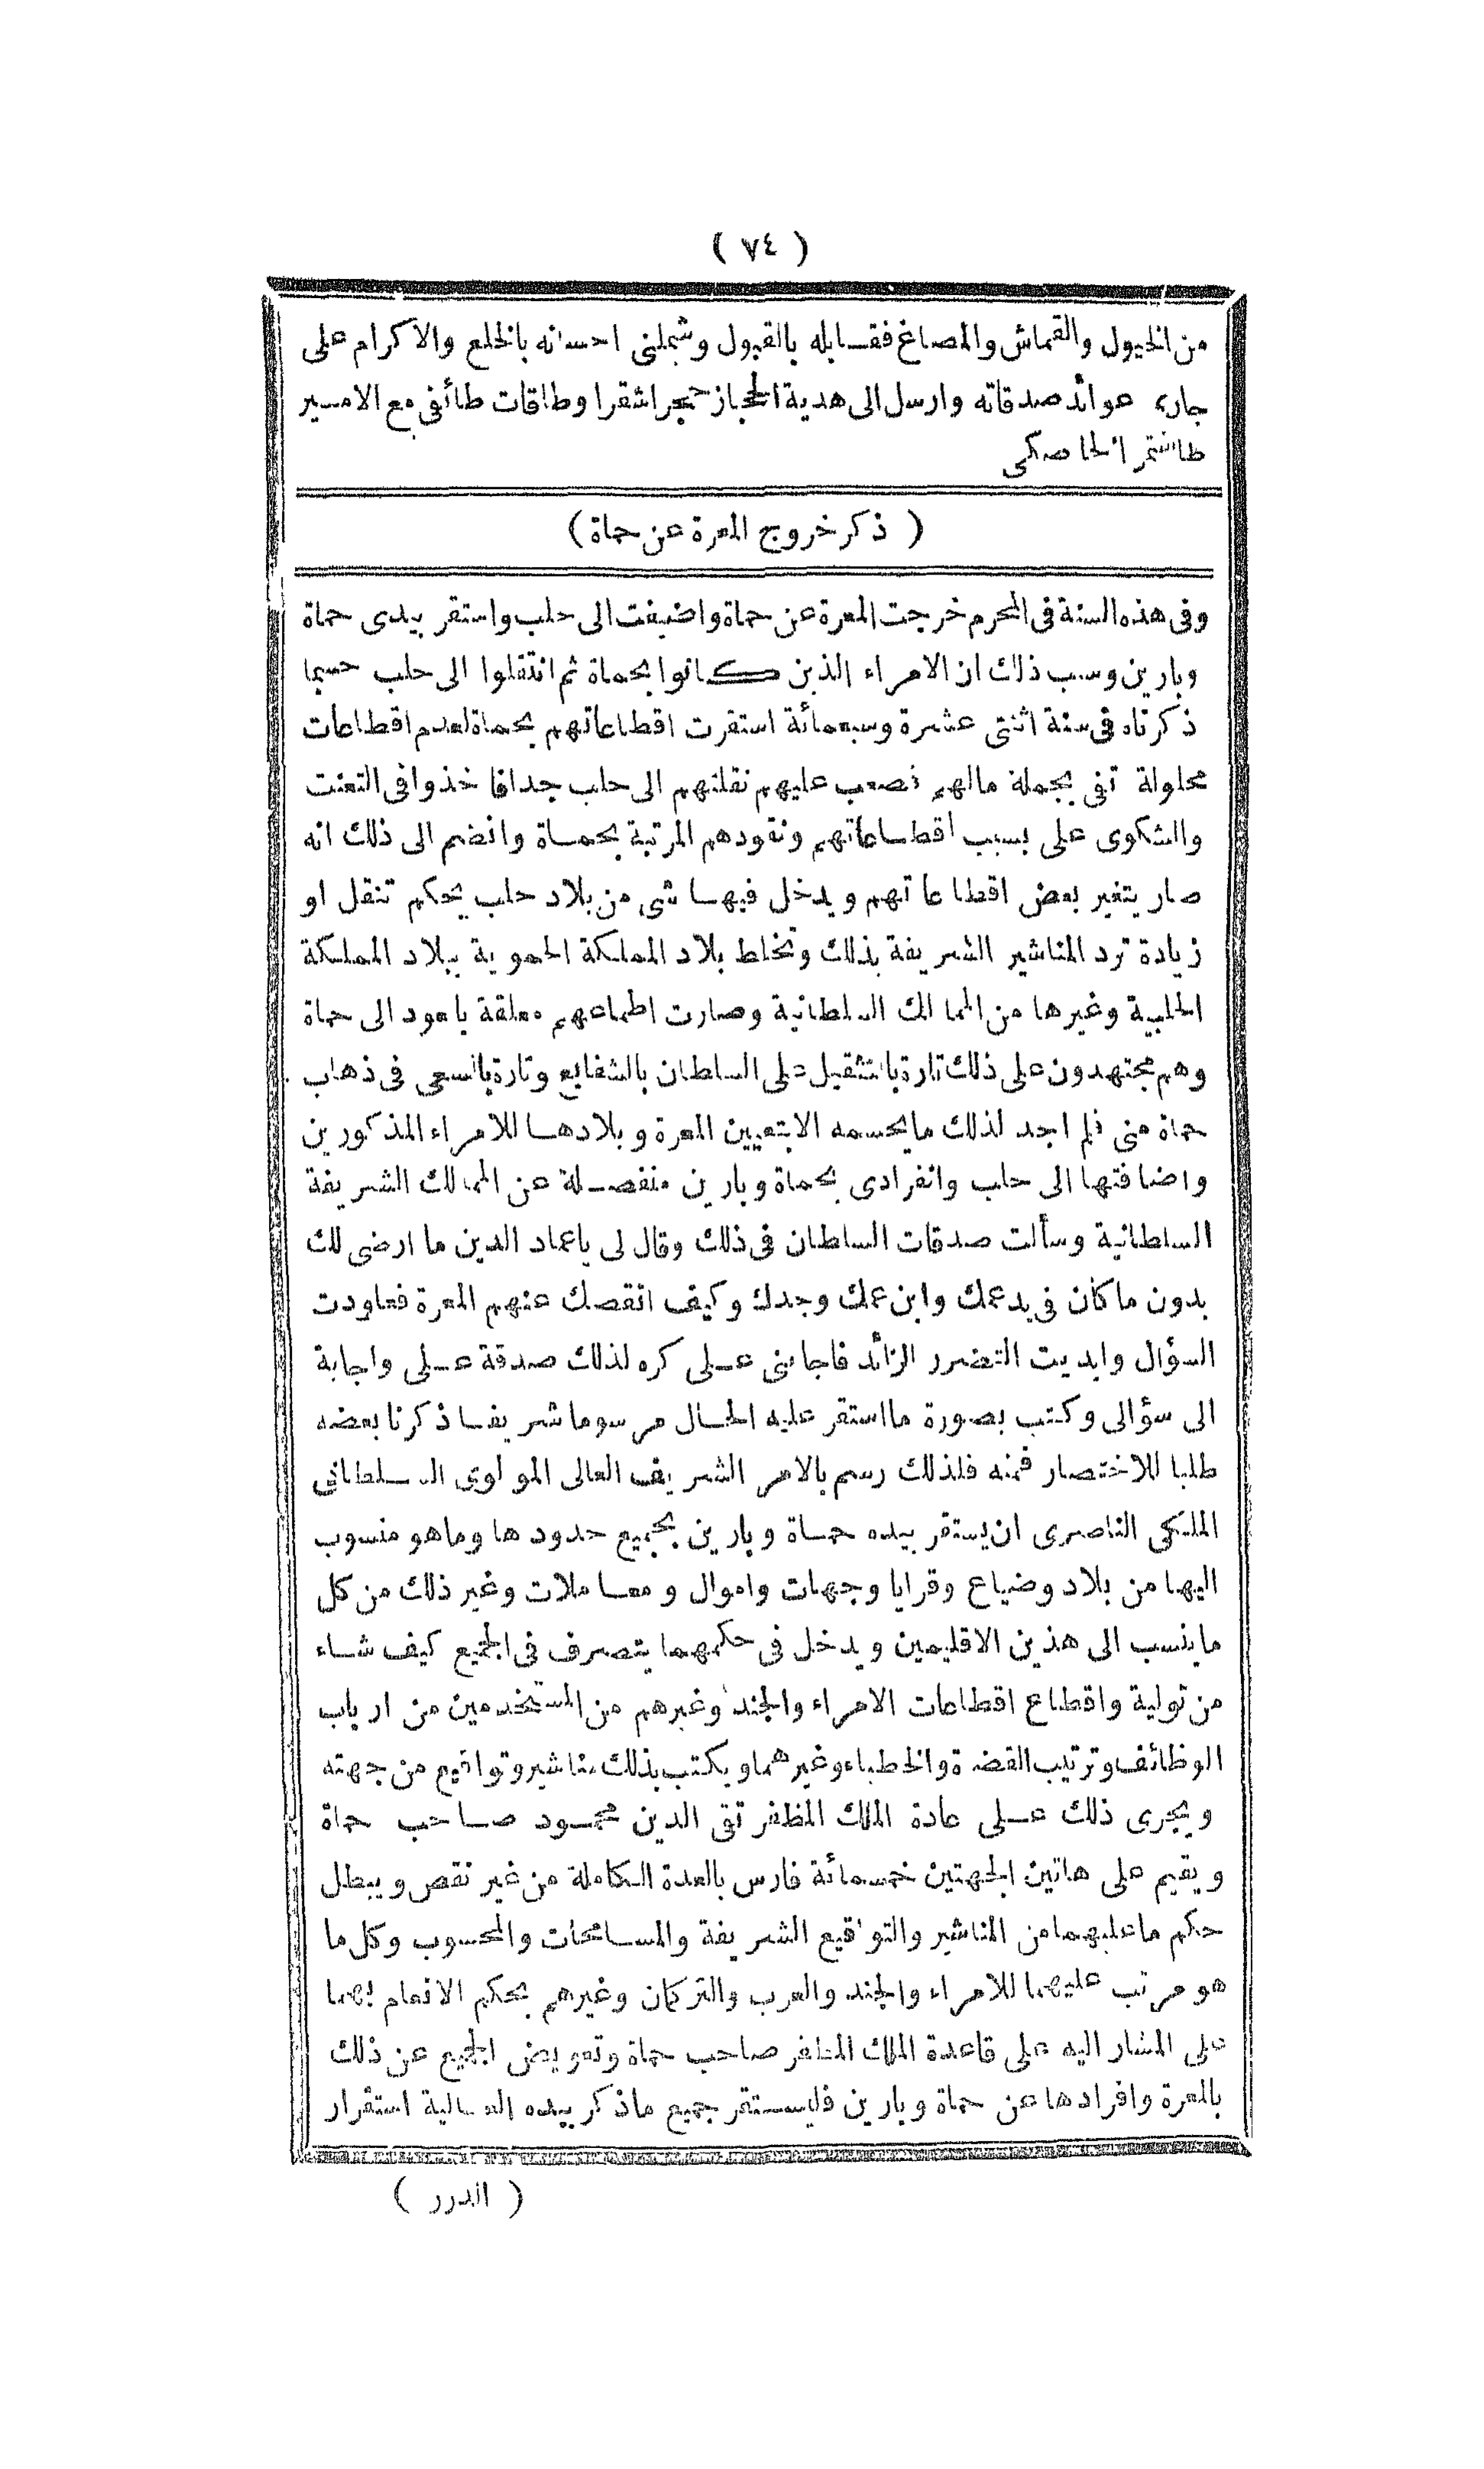 ( ٧٤ )
من الخيول والقماش والمصاغ فقـابله بالقبول وشملنى احسانه بالخلع والاكرام على
جارى عوائد صدقاته وارسل الى هدية الحجاز حجرا شقرا وطاقات طائفى مع الامـير
طاشتمر الخاصكى
( ذكر خروج المعرة عن حماة )
وفى هذه السنة فى المحرم خرجت المعرة عن حماة واضيفت الى حلب واستقر بيدى حماة
وبارين وسبب ذلك ان الامراء الذين كانوا بحماة ثم انتقلوا الى حلب حسبما
ذكرناه فى سنة اثنتى عشرة وسبعمائة استقرت اقطاعاتهم بحماة لعدم اقطاعات
محلولة تفى بجملة مالهم فصعب عليهم نقلتهم الى حلب جدا فاخذوا فى التعنت
والشكوى على بسبب اقطـاعاتهم ونقودهم المرتبة بحمـاة وانضم الى ذلك انه
صار يتغير بعض اقطاعاتهم ويدخل فيهـا شى من بلاد حلب بحكم تنقل او
زيادة ترد المناشير الشريفة بذلك وتخلط بلاد المملكة الحموية ببلاد المملكة
الحلبية وغيرها من الممالك السلطانية وصارت اطماعهم معلقة بالعود الى حماة
وهم مجتهدون على ذلك تارة بالتثقيل على السلطان بالشفايع وتارة بالسعى فى ذهاب
حماة منى فلم اجد لذلك مايحسمه الا بتعيين المعرة وبلادهـا للامراء المذكورين
واضافتها الى حلب وانفرادى بحماة وبارين منفصـلة عن الممالك الشريفة
السلطانية وسألت صدقات السلطان فى ذلك وقال لى ياعماد الدين ما ارضى لك
بدون ما كان فى يد عمك وابن عمك وجدك وكيف انقصك عنهم المعرة فعاودت
السؤال وابديت التضرر الزائد فاجابنى عـلى كره لذلك صدقة عـلى واجابة
الى سؤالى وكتب بصورة ما استقر عليه الحـال مرسوما شريفـا ذكرنا بعضه
طلبا للاختصار فمنه فلذلك رسم بالامر الشريف العالى المولوى السـلطانى
الملكى الناصرى ان يستقر بيده حمـاة وبارين بجميع حدودها وماهو منسوب
اليهـا من بلاد وضياع وقرايا وجهات واموال ومعـاملات وغير ذلك من كل
ماينسب الى هذين الاقليمين ويدخل فى حكمهما يتصرف فى الجميع كيف شـاء
من تولية واقطاع اقطاعات الامراء والجند وغيرهم من المستخدمين من ارباب
الوظائف وترتيب القضـة والخطباء وغيرهما ويكتب بذلك مناشير وتواقيع من جهته
ويجرى ذلك عـلى عادة الملك المظفر تقى الدين محمـود صـاحب حماة
ويقيم على هاتين الجهتين خمسمائة فارس بالعدة الكاملة من غير نقص ويبطل
حكم ما عليهـما من المناشير والتواقيع الشريفة والمسـامحات والمحسوب وكل ما
هو مرتب عليهما للامراء والجند والعرب والتركمان وغيرهم بحكم الانعام بهما
على المشار اليه على قاعدة الملك المظفر صاحب حماة وتعويض الجميع عن ذلك
بالمعرة وافرادها عن حماة وبارين فليسـتقر جميع ماذكر بيده العـالية استقرار
( الدرر )